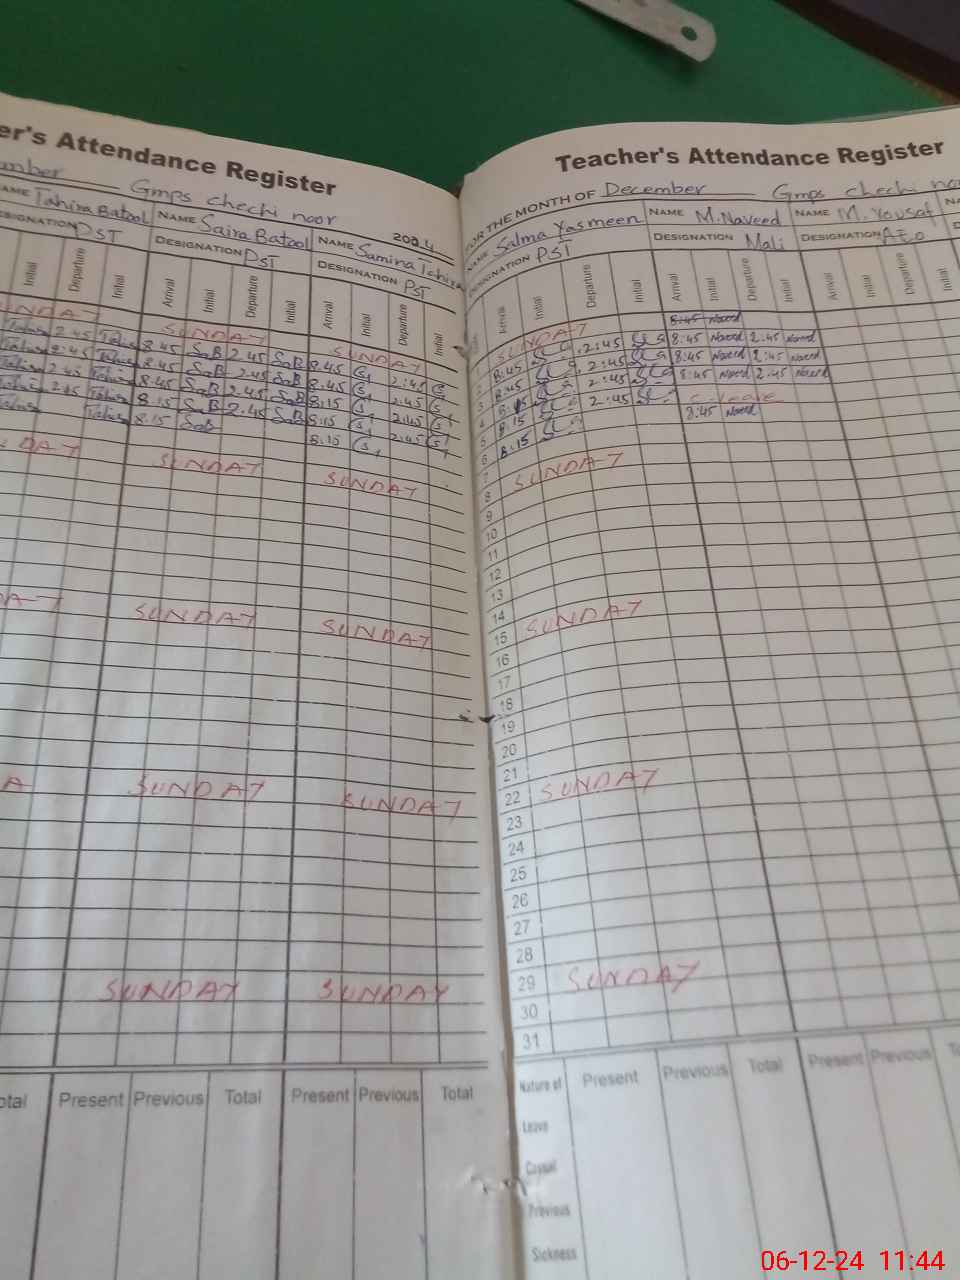 er's Attendance Register
mber Gmps chechi noor
2024
AME Tahira Batool NAME Saira Batool NAME Samina Tahira
DESIGNATION PST DESIGNATION PST
Initial Departure Initial Arrival Initial Departure Initial Arrival Initial Departure Initial
SUNDAY SUNDAY
2.45 8.45 SaB 2.45 SaB 8.45 2:45
2.45 8.45 SaB 2.45 SaB 8.45 2.45
2.45 8.45 SaB 2.45 SaB 8:15 2:45
2.45 8.15 SaB 2.45 SaB 8:15 2:45
8.15 SaB 8.15
DAY SUNDAY SUNDAY
SUNDAY SUNDAY
A SUNDAY SUNDAY
SUNDAY SUNDAY
otal Present Previous Total Present Previous Total
Teacher's Attendance Register
FOR THE MONTH OF December Gmps chechi noo
NAME Salma Yasmeen NAME M.Naveed NAME M. Yousaf NA
DESIGNATION PST DESIGNATION Mali DESIGNATION AEO
Arrival Initial Departure Initial Arrival Initial Departure Initial Arrival Initial Departure Initial
SUNDAY 8:45 Naveed
2 8:45 2:45 8:45 Naveed 2:45 Naveed
3 8:45 2:45 8:45 Naveed 2:45 Naveed
4 8:15 2:45 8:45 Naveed 2:45 Naveed
5 8:15 2:45 C-leave
6 8:15 8:45 Naveed
7
8 SUNDAY
9
10
11
12
13
14
15 SUNDAY
16
17
18
19
20
21
22 SUNDAY
23
24
25
26
27
28
29 SUNDAY
30
31
Nature of Present Previous Total Present Previous To
Leave
Casual
Previous
Sickness
06-12-24 11:44